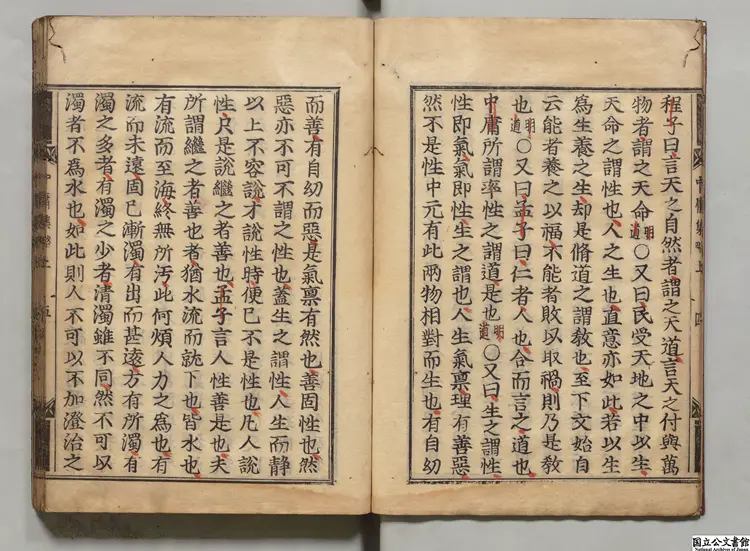 程子曰言天之自然者謂之天道言天之付與萬
物者謂之天命明道○又曰民受天地之中以生
天命之謂性也人之生也直意亦如此若以生
爲生養之生却是脩道之謂敎也至下文始自
云能者養之以福不能者敗以取禍則乃是敎
也明道○又曰孟子曰仁者人也合而言之道也
中庸所謂率性之謂道是也明道○又曰生之謂性
性即氣氣即性生之謂也人生氣稟理有善惡
然不是性中元有此兩物相對而生也有自幼
而善有自幼而惡是氣稟有然也善固性也然
惡亦不可不謂之性也蓋生之謂性人生而靜
以上不容說才說性時便已不是性也凡人說
性只是說繼之者善也孟子言人性善是也夫
所謂繼之者善也者猶水流而就下也皆水也
有流而至海終無所汚此何煩人力之爲也有
流而未遠固已漸濁有出而甚遠方有所濁有
濁之多者有濁之少者清濁雖不同然不可以
濁者不爲水也如此則人不可以不加澄治之
國立公文書館
National Archives of Japan